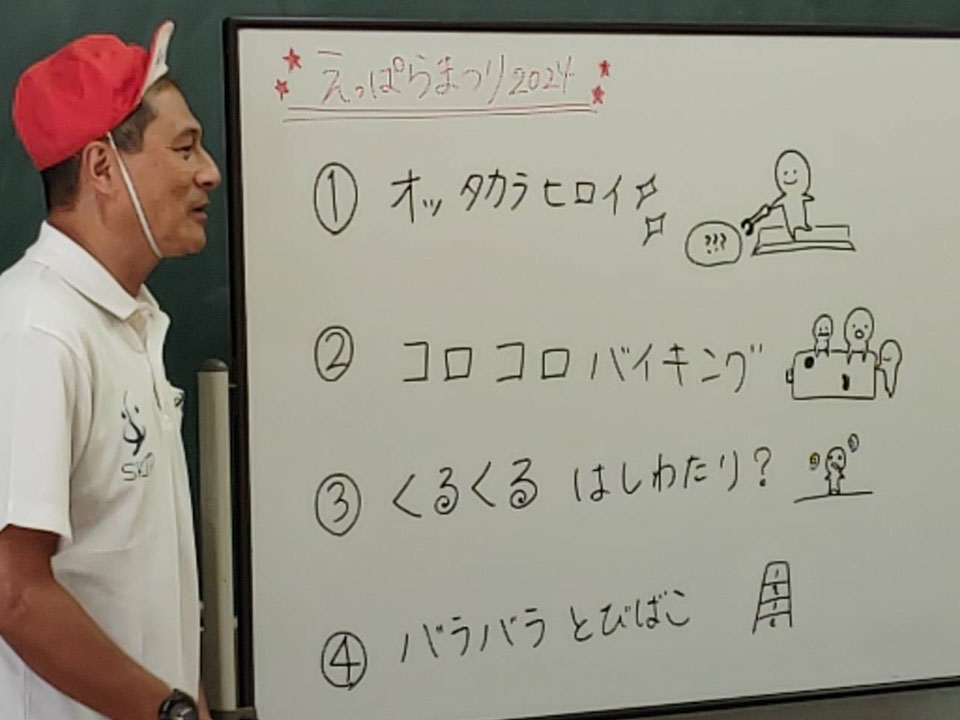 えっぱらまつり2024
① オッタカラヒロイ
???
② コロコロバイキング
③ くるくる はしわたり?
④ バラバラとびばこ